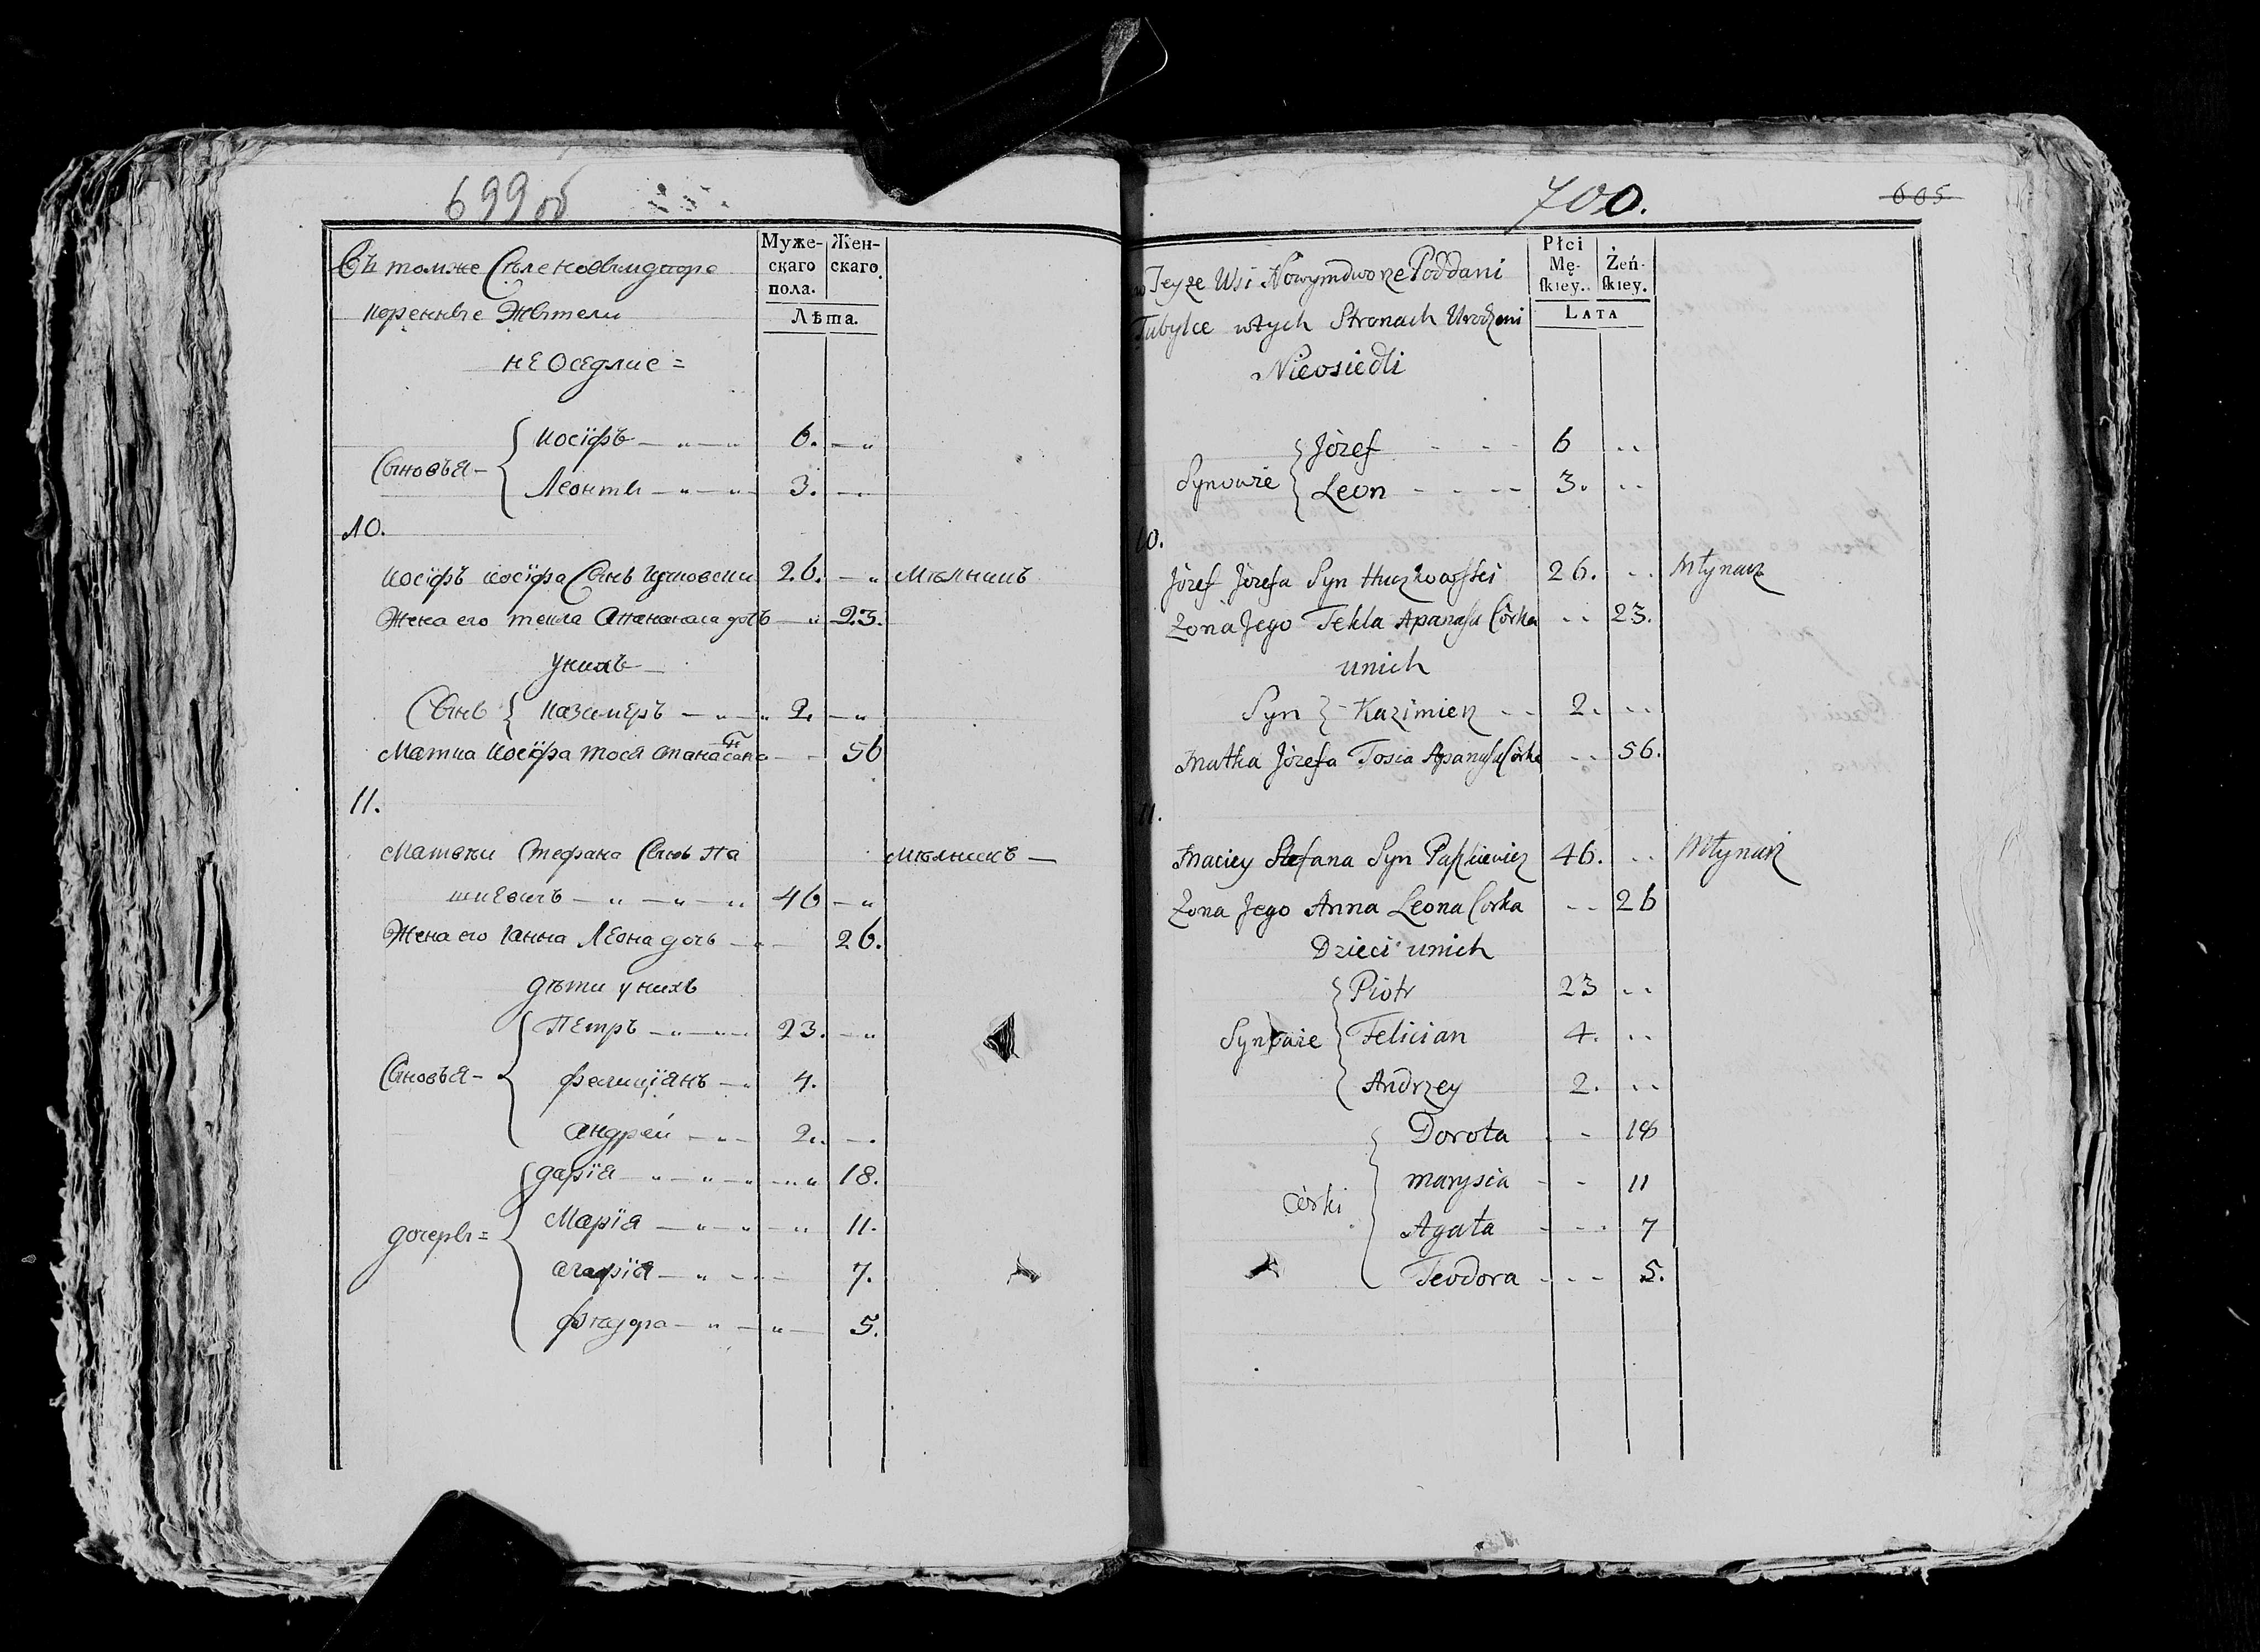 699 об
Въ томже Селе новымдворе
Муже-
скаго
пола.
Жен-
скаго.
коренные Жители
Лѣта.
не Оседлые =
Сыновья -
Иосїфъ 6.
Леонтъ 3.
10.
Иосїфъ Иосїфа Сынъ 26. Мѣлникъ
Жена его текла Апанаса дочь 23.
у нихъ
Сынъ Казимеръ 2.
Матка Иосїфа Тося 56
11.
Матвѣи Стефана Сынъ Па
мѣлникъ
шкевичъ 46
Жена его Ганна Леона дочь 26.
дѣти у нихъ
Сыновья -
Петръ 23.
Фелицїянъ 4.
Андрей 2.
дочеръ =
дарїя 18.
Марїя 11.
Агафїя 7.
5.
700.
605
w Teyże Wsi Nowymdworze Poddani
Płci
Mę-
skiey.
Żeń-
skiey.
Tubylce w tych Stronach Urodzeni
LATA
Nieosiedli
Synowie
Józef 6
Leon 3.
10.
Józef Józefa Syn Huczkowski 26. Młynarz
Żona Jego Tekla Apanasa Córka 23.
u nich
Syn Kazimierz 2.
Matka Józefa Tosia Apanasa Córka 56.
11.
Maciey Stefana Syn Paszkiewicz 46. Młynarz
Żona Jego Anna Leona Córka 26
Dzieci u nich
Synowie
Piotr 23
Felician 4.
Andrzey 2.
Córki
Dorota 18
Marysia 11
Agata 7
Teodora 5.